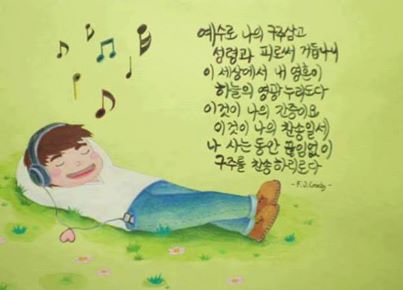 예수로 나의 구주삼고
성령과 피로써 거듭나니
이 세상에서 내 영혼이
하늘의 영광 누리도다
이것이 나의 간증이요
이것이 나의 찬송일세
나 사는동안 끊임없이
구주를 찬송하리로다
- F.J.Crosby -